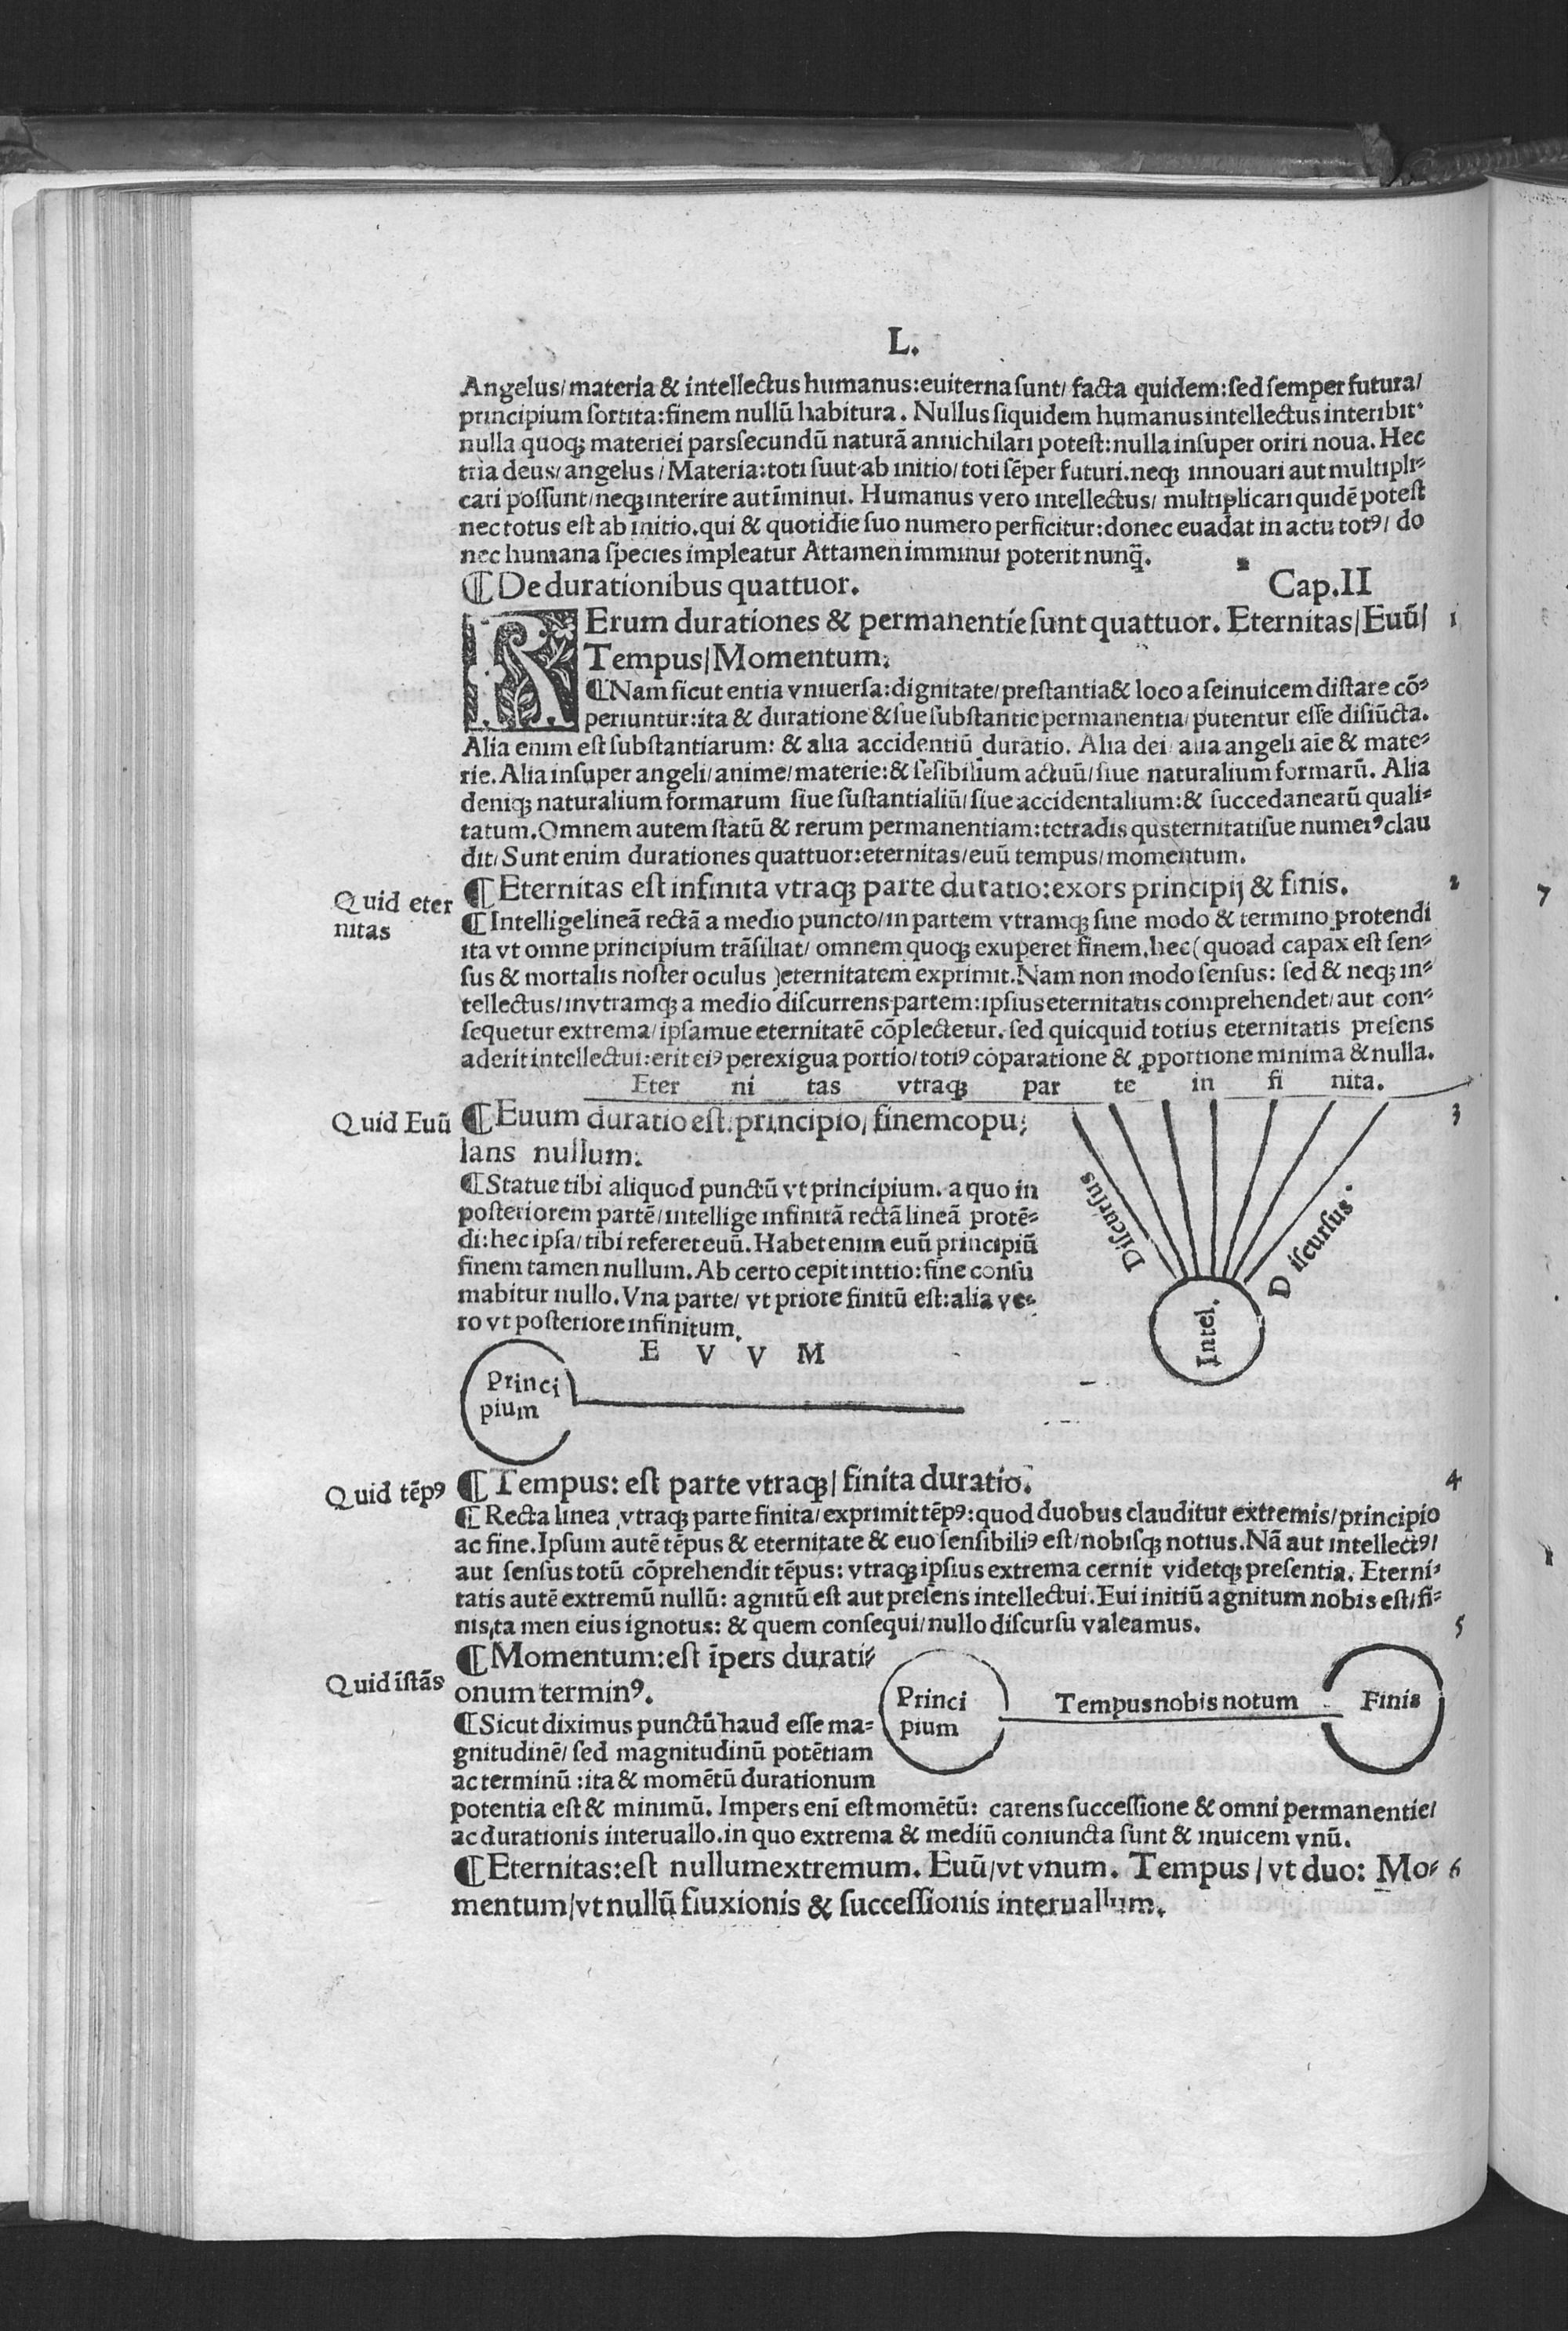 L.
Angelus/materia & intellectus humanus:euiterna sunt/ facta quidem:sed semper futura/
principium sortita:finem nullū habitura. Nullus siquidem humanus intellectus interibit·
nulla quoqꝫ materiei pars secundū naturā annichilari potest:nulla insuper oriri noua. Hec
tria deus/angelus/Materia:toti suut ab initio/toti sēper futuri.neqꝫ innouari aut multipli-
cari possunt/neqꝫ interire aut īminui. Humanus vero intellectus/ multiplicari quidē potest
nec totus est ab initio.qui & quotidie suo numero perficitur:donec euadat in actu totꝰ/ do
nec humana species impleatur Attamen imminui poterit nunq̄.
¶De durationibus quattuor. Cap.II
RErum durationes & permanentie sunt quattuor. Eternitas/Euū/ 1
Tempus/Momentum.
¶Nam sicut entia vniuersa:dignitate/prestantia & loco a seinuicem distare cō-
periuntur:ita & duratione & sue substantie permanentia/putentur esse disiūcta.
Alia enim est substantiarum: & alia accidentiū duratio. Alia dei/alia angeli aīe & mate-
rie. Alia insuper angeli/anime/materie:& sēsibilium actuū/siue naturalium formarū. Alia
deniqꝫ naturalium formarum siue sustantialiū/siue accidentalium:& succedanearū quali-
tatum.Omnem autem statū & rerum permanentiam:tetradis qusternitatisue numerꝰ clau
dit/Sunt enim durationes quattuor:eternitas/euū tempus/momentum.
Quid eter
nitas
¶Eternitas est infinita vtraqꝫ parte duratio:exors principij & finis. 2
¶Intellige lineā rectā a medio puncto/in partem vtramqꝫ sine modo & termino protendi
ita vt omne principium trāsiliat/ omnem quoqꝫ exuperet finem.hec(quoad capax est sen-
sus & mortalis noster oculus )eternitatem exprimit.Nam non modo sensus: sed & neqꝫ in-
tellectus/in vtramqꝫ a medio discurrens partem:ipsius eternitatis comprehendet/aut con-
sequetur extrema/ipsamue eternitatē cōplectetur.sed quicquid totius eternitatis presens
aderit intellectui:erit eiꝰ perexigua portio/totiꝰ cōparatione & ꝓportione minima & nulla.
Eter ni tas vtraqꝫ par te in fi nita.
Quid Euū
¶Euum duratio est:principio/ finem copu- 3
lans nullum.
¶Statue tibi aliquod punctū vt principium. a quo in
posteriorem partē/intellige infinitā rectā lineā protē-
di:hec ipsa/tibi referet euū.Habet enim euū principiū
finem tamen nullum.Ab certo cepit inttio:fine consu
mabitur nullo.Vna parte/ vt priore finitū est:alia ve-
ro vt posteriore infinitum.
Discursus
Discursus.
Intel.
E V V M
Princi
pium
Quid tēpꝰ
¶Tempus: est parte vtraqꝫ/ finita duratio. 4
¶Recta linea vtraqꝫ parte finita/exprimit tēpꝰ:quod duobus clauditur extremis/principio
ac fine.Ipsum autē tēpus & eternitate & euo sensibiliꝰ est/nobisqꝫ notius.Nā aut intellectꝰ/
aut sensus totū cōprehendit tēpus: vtraqꝫ ipsius extrema cernit videtqꝫ presentia. Eterni-
tatis autē extremū nullū: agnitū est aut presens intellectui.Eui initiū agnitum nobis est/fi-
nis,ta men eius ignotus: & quem consequi/nullo discursu valeamus.
Quid īstās
¶Momentum:est īpers durati- 5
onum terminꝰ.
¶Sicut diximus punctū haud esse ma-
gnitudinē/ sed magnitudinū potētiam
ac terminū :ita & momētū durationum
Princi
pium
Tempus nobis notum
Finis
potentia est & minimū. Impers enī est momētū: carens successione & omni permanentie/
ac durationis interuallo.in quo extrema & mediū coniuncta sunt & inuicem vnū.
¶Eternitas:est nullum extremum. Euū/vt vnum. Tempus/vt duo: Mo- 6
mentum/vt nullū fiuxionis & successionis interuallum.
7